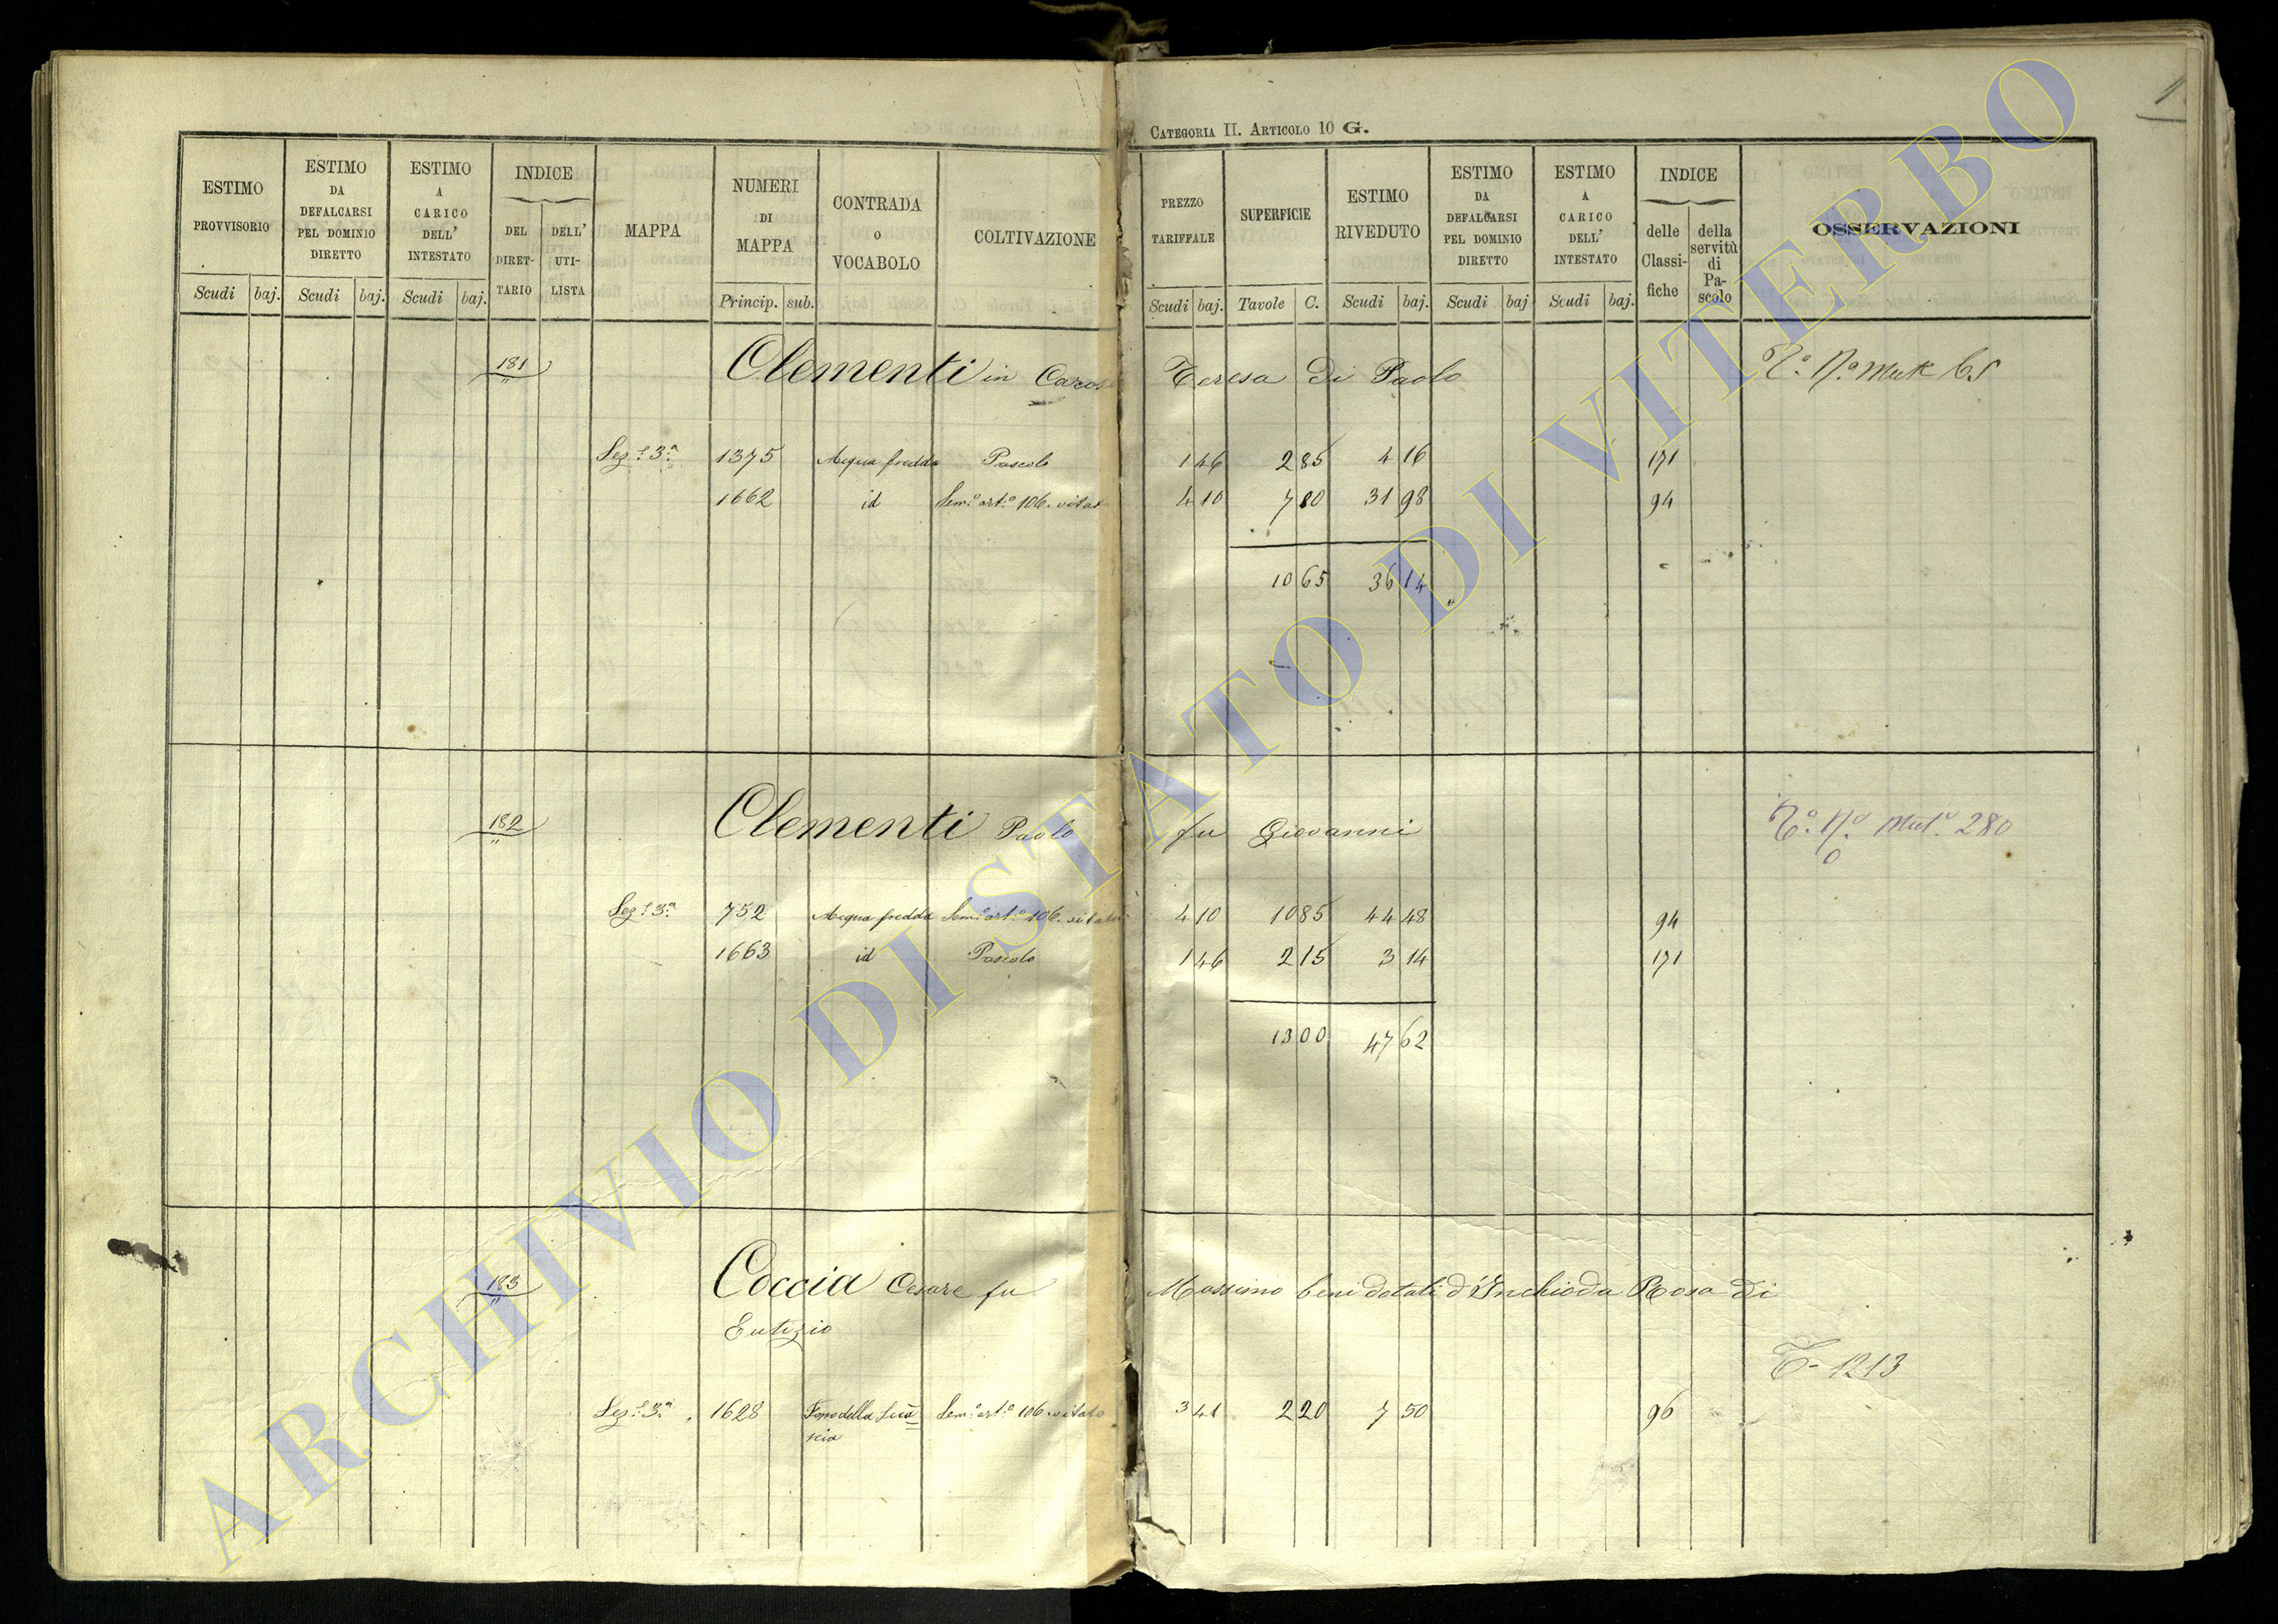 CATEGORIA II. ARTICOLO 10 G.
ESTIMO PROVVISORIO Scudi baj.
ESTIMO DA DEFALCARSI PEL DOMINIO DIRETTO Scudi baj.
ESTIMO A CARICO DELL' INTESTATO Scudi baj.
INDICE DEL DIRET-TARIO DELL' UTI-LISTA
MAPPA
NUMERI DI MAPPA Princip. sub.
CONTRADA O VOCABOLO
COLTIVAZIONE
PREZZO TARIFFALE Scudi baj.
SUPERFICIE Tavole C.
ESTIMO RIVEDUTO Scudi baj.
ESTIMO DA DEFALCARSI PEL DOMINIO DIRETTO Scudi baj
ESTIMO A CARICO DELL' INTESTATO Scudi baj.
INDICE delle Classi-fiche della servitù di Pa-scolo
OSSERVAZIONI
1
181 Clementi in Teresa di Paolo
65
Sez.e 3.a 1375 Acqua fredda Pascolo 1 46 2 85 4 16 171
1662 id Sem.o art.o 106. vitat 4 10 7 80 31 98 94
10 65 36 14
182 Clementi Paolo fu Giovanni
280
Sez.e 3.a 752 Acqua fredda Sem.o art.o 106. vitato 4 10 10 85 44 48 94
1663 id Pascolo 1 46 2 15 3 14 171
13 00 47 62
183 Coccia Cesare fu Massimo beni dotali d'Inchioda Rosa di
Eutizio
T- 1213
Sez.e 3.a 1628 Sem.o art.o 106. vitato 3 41 2 20 7 50 96
ARCHIVIO DI STATO DI VITERBO